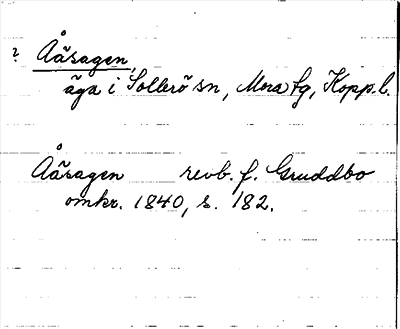 ? Åäsagen,
äga i Sollerö sn, Mora tg, Kopp.l.
Åäsagen revb. f. Gruddbo
omkr. 1840, s. 182.